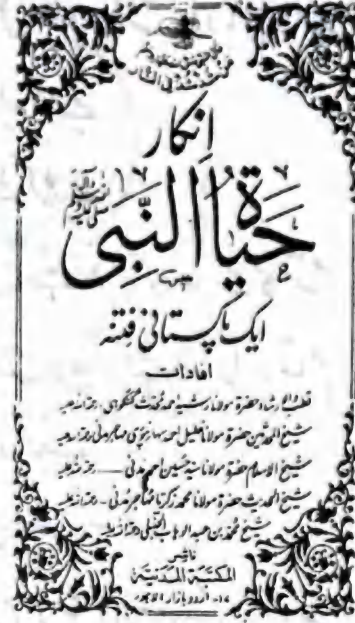 من شذ شذ فی النار
انکار
حیاۃ النبی صلی اللہ علیہ وسلم
ایک پاکستانی فتنہ
افادات
قطب الارشاد حضرۃ مولانا رشید احمد محدث گنگوہی رحمۃ اللہ علیہ
شیخ المحدثین حضرۃ مولانا خلیل احمد سہارنپوری مہاجر مدنی رحمۃ اللہ علیہ
شیخ الاسلام حضرۃ مولانا سید حسین احمد مدنی رحمۃ اللہ علیہ
شیخ الحدیث حضرۃ مولانا محمد زکریا مہاجر مدنی رحمۃ اللہ علیہ
شیخ محمد بن عبد الوہاب الحنبلی رحمۃ اللہ علیہ
ناشر
المکتبۃ المدنیۃ
۱۷- اردو بازار لاہور